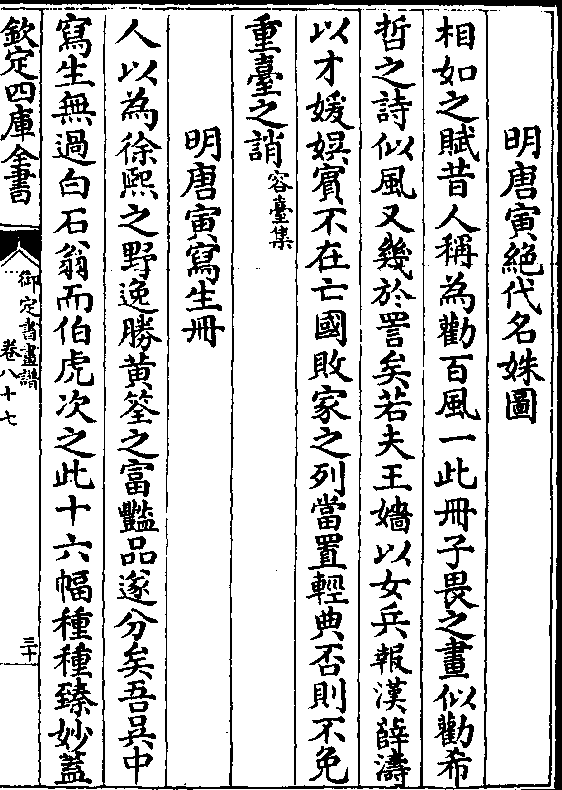 明唐寅絶代名姝圖
相如之賦昔人稱為勸百風一此冊子畏之畫似勸希
哲之詩似風又幾於詈矣若夫王嬙以女兵報漢薛濤
以才媛娯賓不在亡國敗家之列當置輕典否則不免
重臺之誚容臺集
明唐寅寫生冊
人以為徐熙之野逸勝黄筌之富豔品遂分矣吾吳中
寫生無過白石翁而伯虎次之此十六幅種種臻妙蓋
欽定四庫全書
御定書畫譜
卷八十七
三十